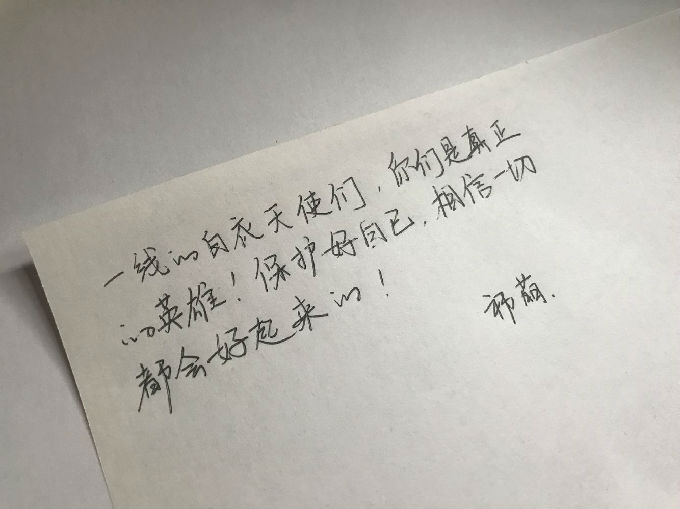 一线的白衣天使们，你们是真正
的英雄！保护好自己，相信一切
都会好起来的！
祁萌.